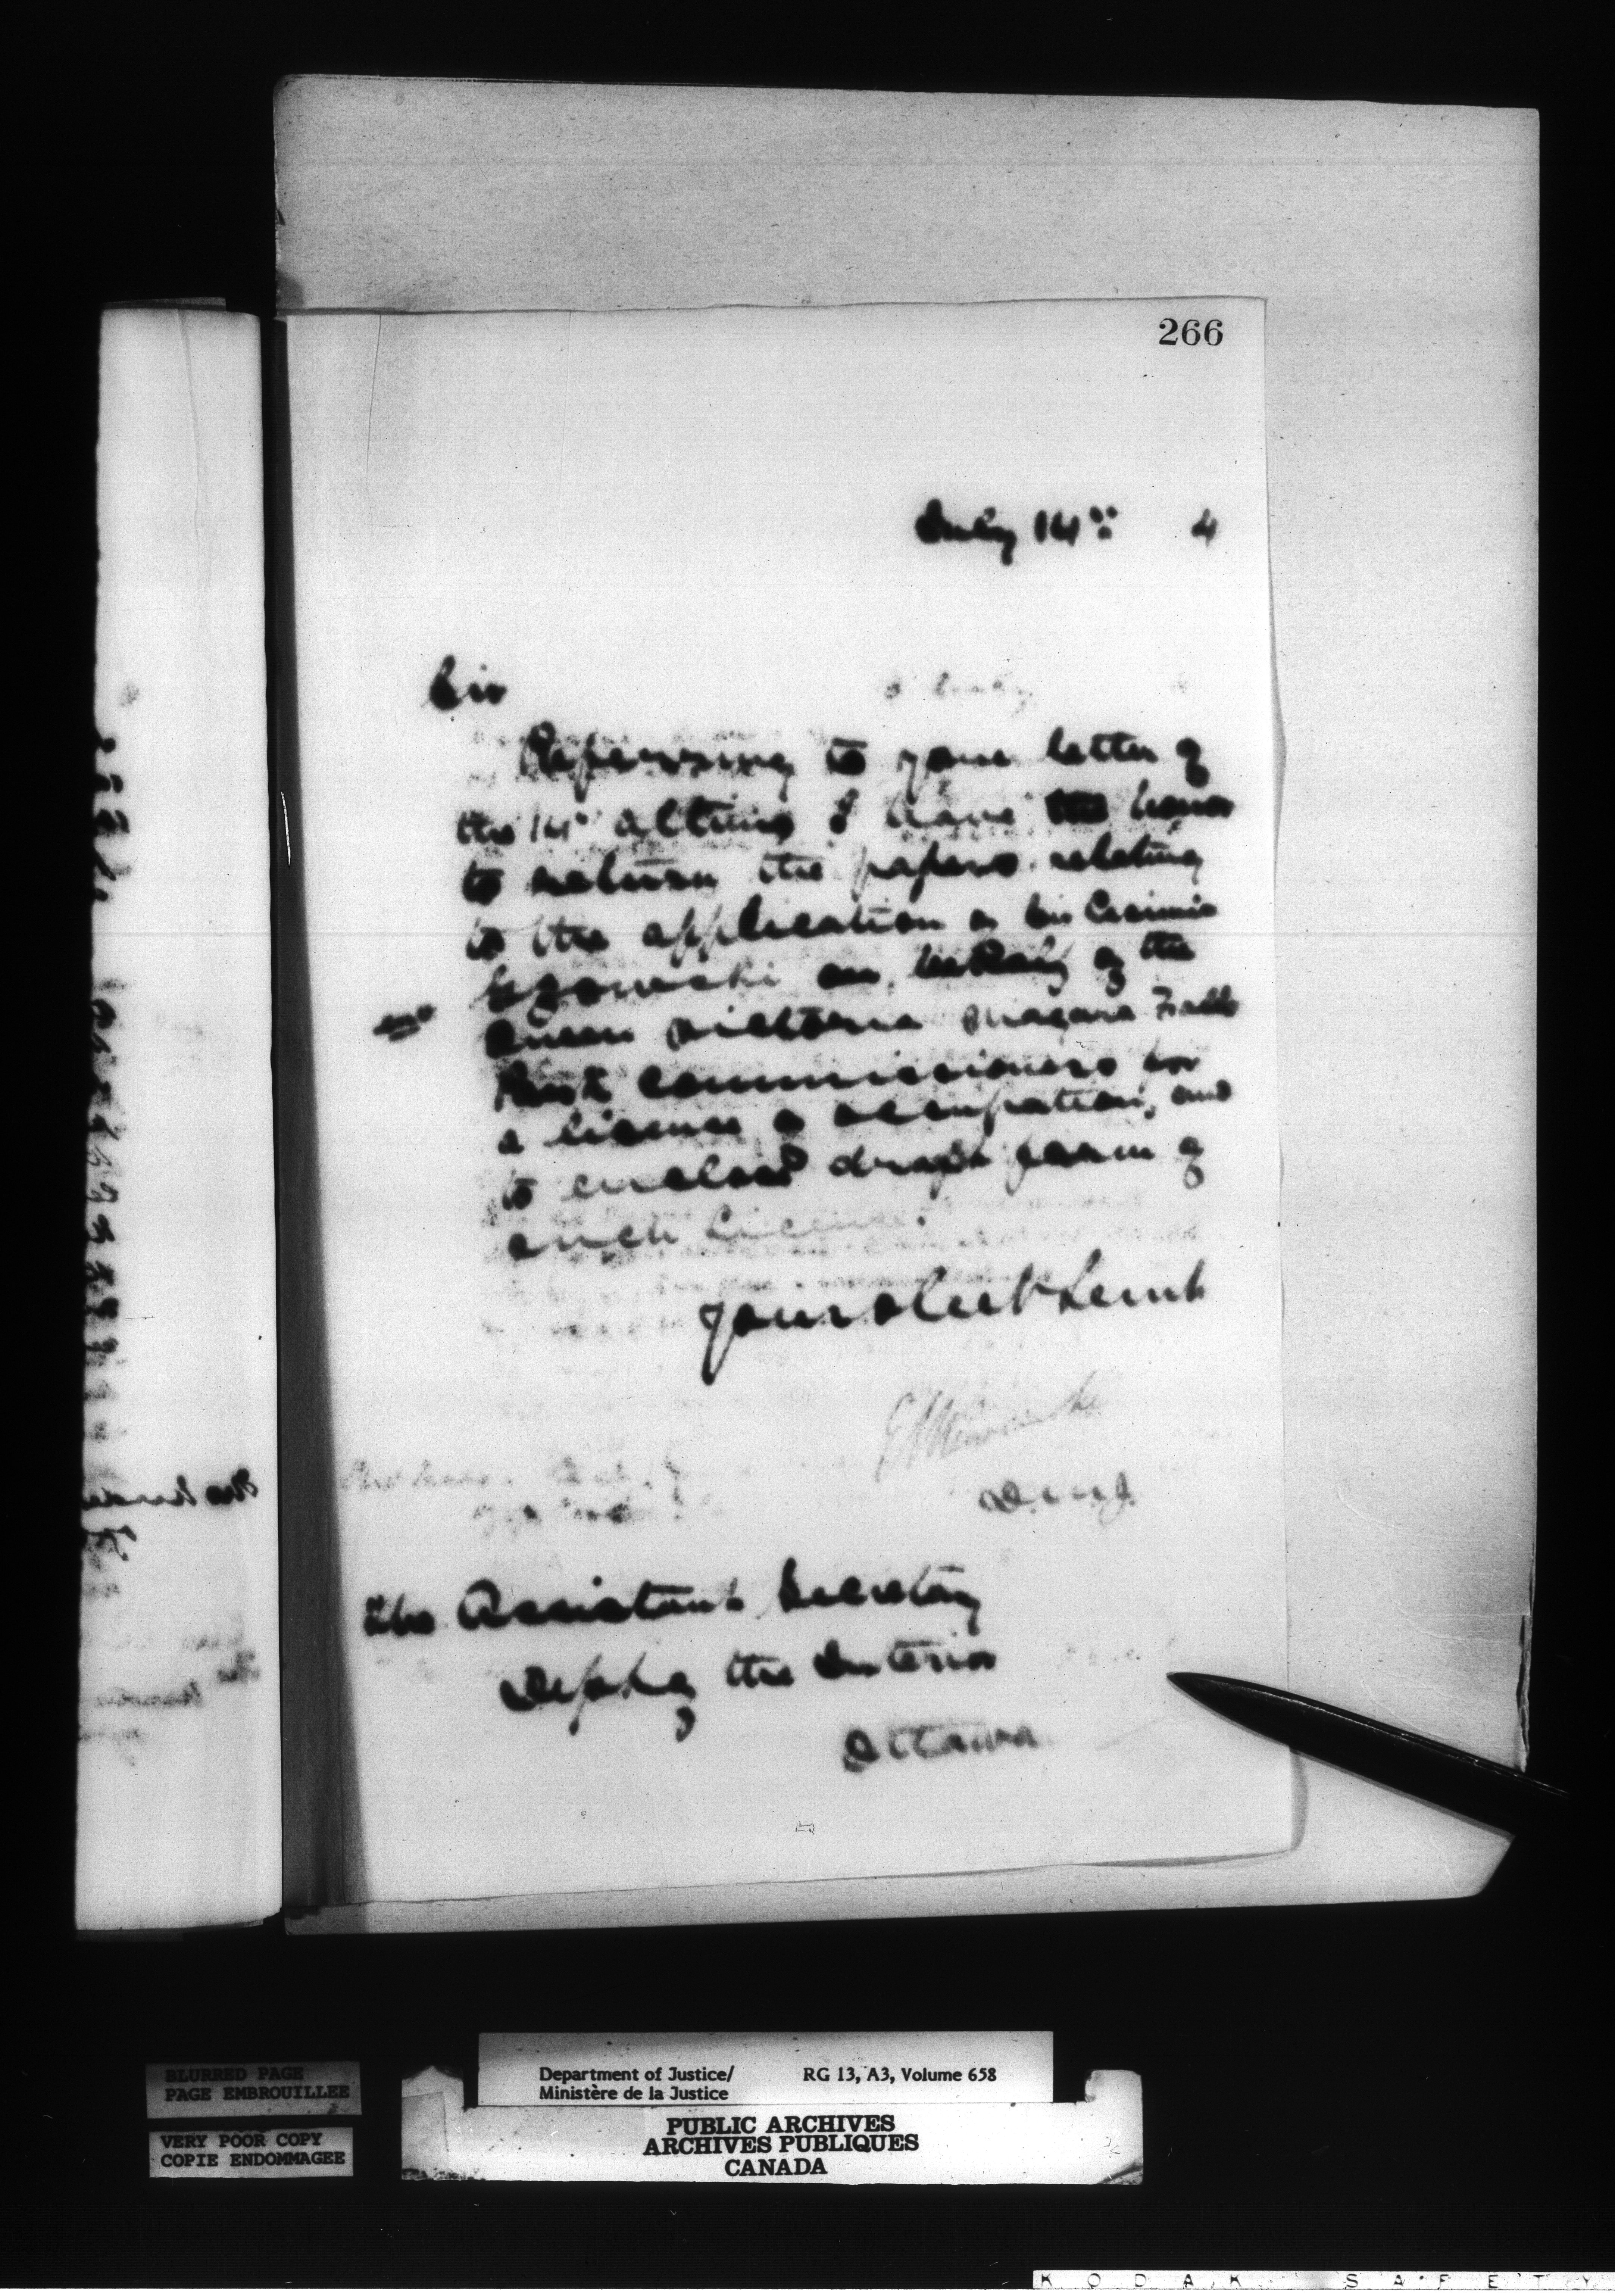 266
July 14" 4
Sir
Referring to your letter of
the 14" ultimo I have the honor
to return the papers relating
to the application of Sir Casimir
Gzowski on behalf of the
Queen Victoria Niagara Falls
Park Commissioners for
a license of occupation, and
to enclose draft form of
such License.
Your obedt Servt
D.M.J.
The Assistant Secretary
Dept of the Interior
Ottawa
BLURRED PAGE
PAGE EMBROUILLEE
VERY POOR COPY
COPIE ENDOMMAGEE
Department of Justice/ RG 13, A3, Volume 658
Ministère de la Justice
PUBLIC ARCHIVES
ARCHIVES PUBLIQUES
CANADA
KODAK SAFETY